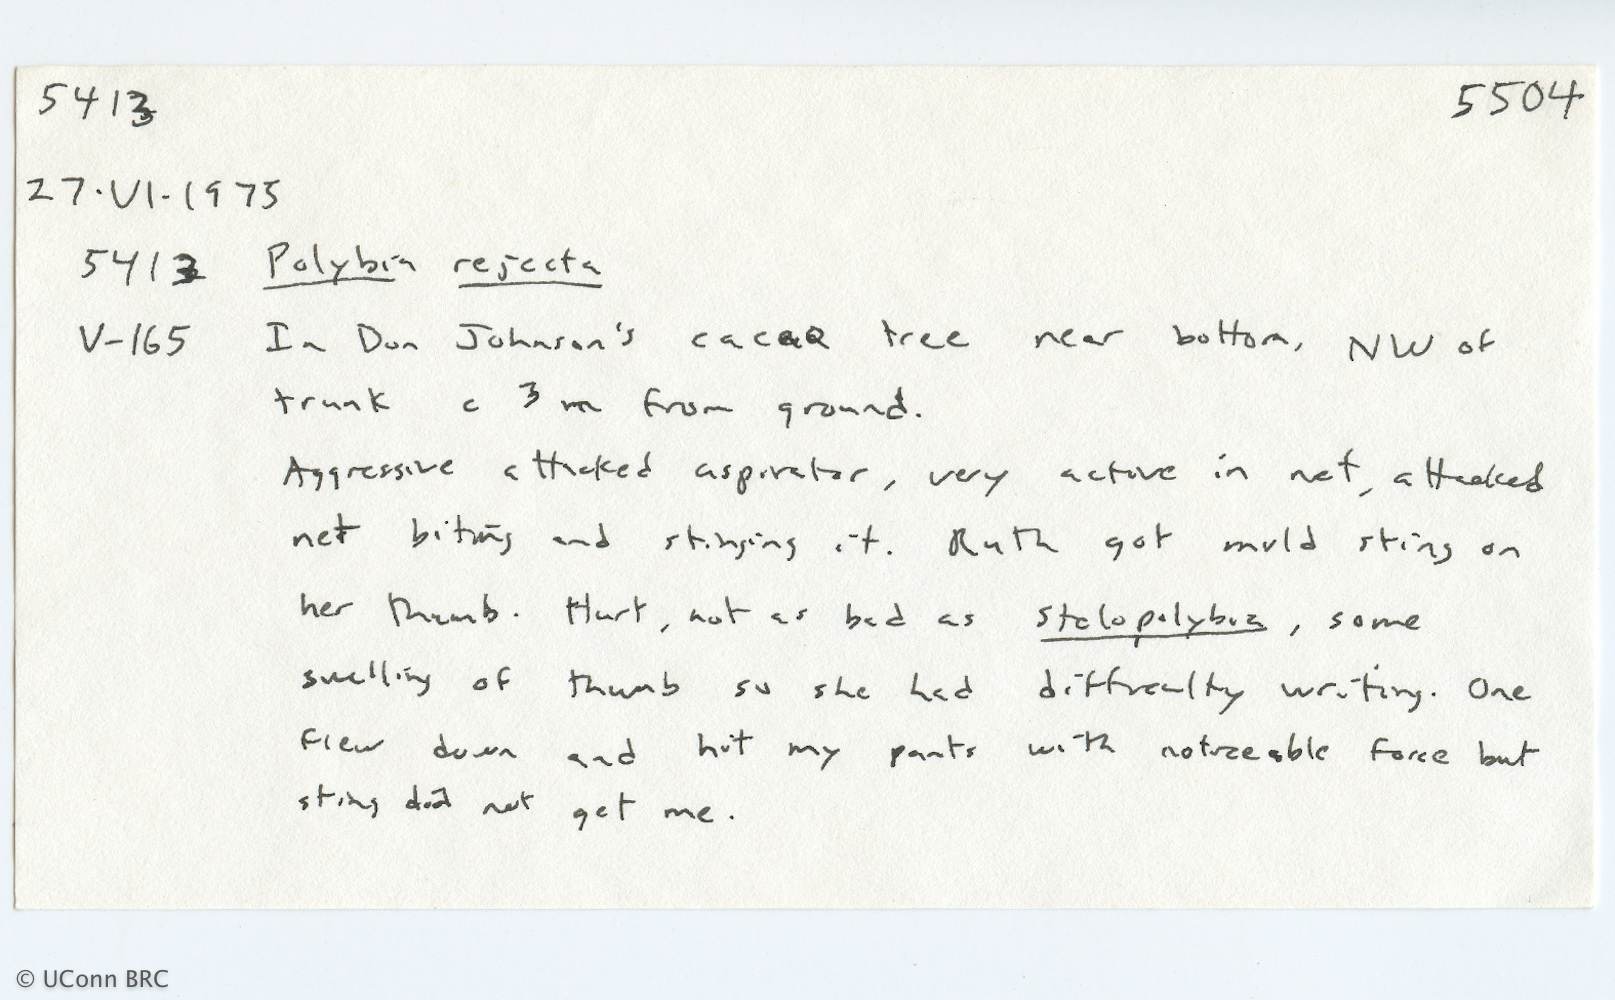 5413 5504
27·VI-1975
5413 Polybia rejecta
V-165 In Don Johnson's cacao tree near bottom, NW of
trunk c 3 m from ground.
Aggressive attacked aspirator, very active in net, attacked
net biting and stinging it. Ruth got mild sting on
her thumb. Hurt, not as bad as Stelopolybia, some
swelling of thumb so she had difficulty writing. One
flew down and hit my pants with noticeable force but
sting did not get me.
© UConn BRC